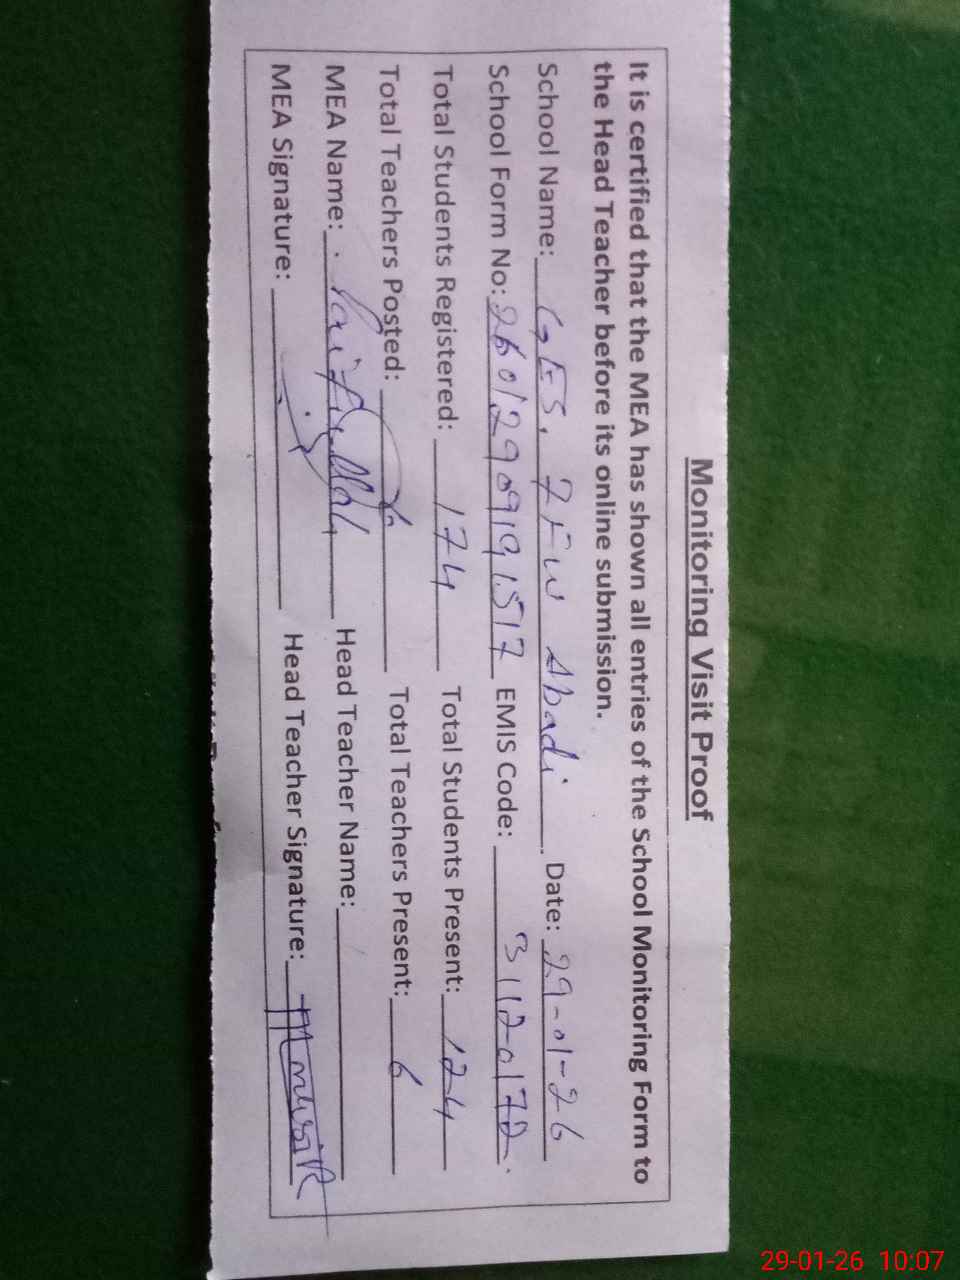 Monitoring Visit Proof
It is certified that the MEA has shown all entries of the School Monitoring Form to
the Head Teacher before its online submission.
School Name: GES. 7FW Abadi Date: 29-01-26
School Form No: 26012909191517 EMIS Code: 31120172
Total Students Registered: 174 Total Students Present: 124
Total Teachers Posted: Total Teachers Present: 6
MEA Name: Head Teacher Name:
MEA Signature: Head Teacher Signature:
29-01-26 10:07